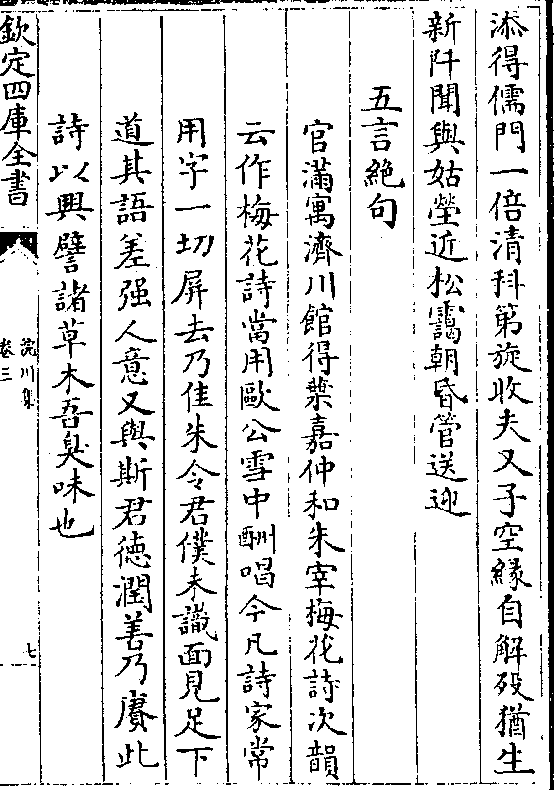 添得儒門一倍清科第旋收夫又子空縁自解歿猶生
新阡聞與姑塋近松靄朝昏管送迎
五言絶句
官滿寓濟川館得葉嘉仲和朱宰梅花詩次韻
云作梅花詩當用歐公雪中酬唱令凡詩家常
用字一切屏去乃佳朱令君僕未識面見足下
道其語差强人意又與斯君徳潤善乃賡此
詩以興譬諸草木吾臭味也
欽定四庫全書
浣川集
卷三
七